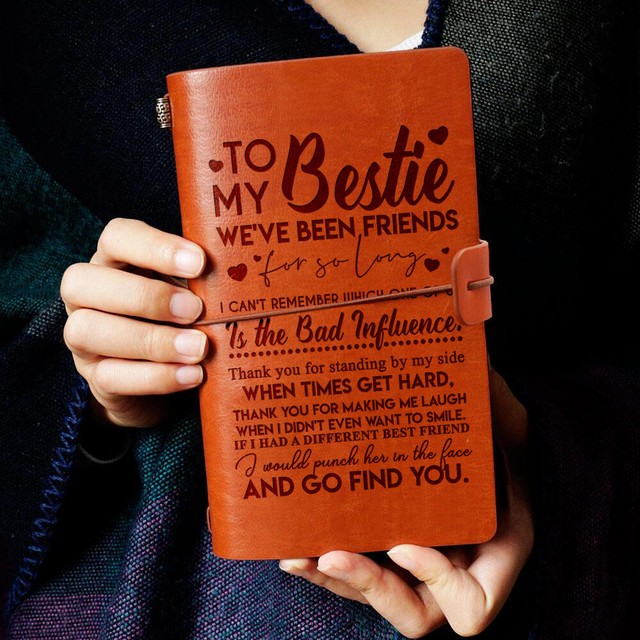 TO
MY Bestie
WE'VE BEEN FRIENDS
for so long
I CAN'T REMEMBER WHICH ONE OF
Is the Bad Influence.
Thank you for standing by my side
WHEN TIMES GET HARD,
THANK YOU FOR MAKING ME LAUGH
WHEN I DIDN'T EVEN WANT TO SMILE.
IF I HAD A DIFFERENT BEST FRIEND
I would punch her in the face
AND GO FIND YOU.